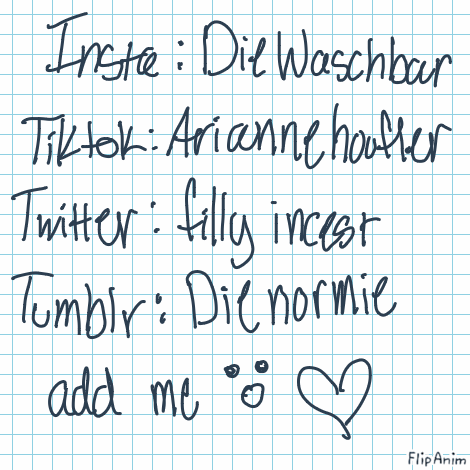 Insta: DieWaschbar
Tiktok: Ariannehoutter
Twitter: filly incest
Tumblr: Dienormie
add me
FlipAnim